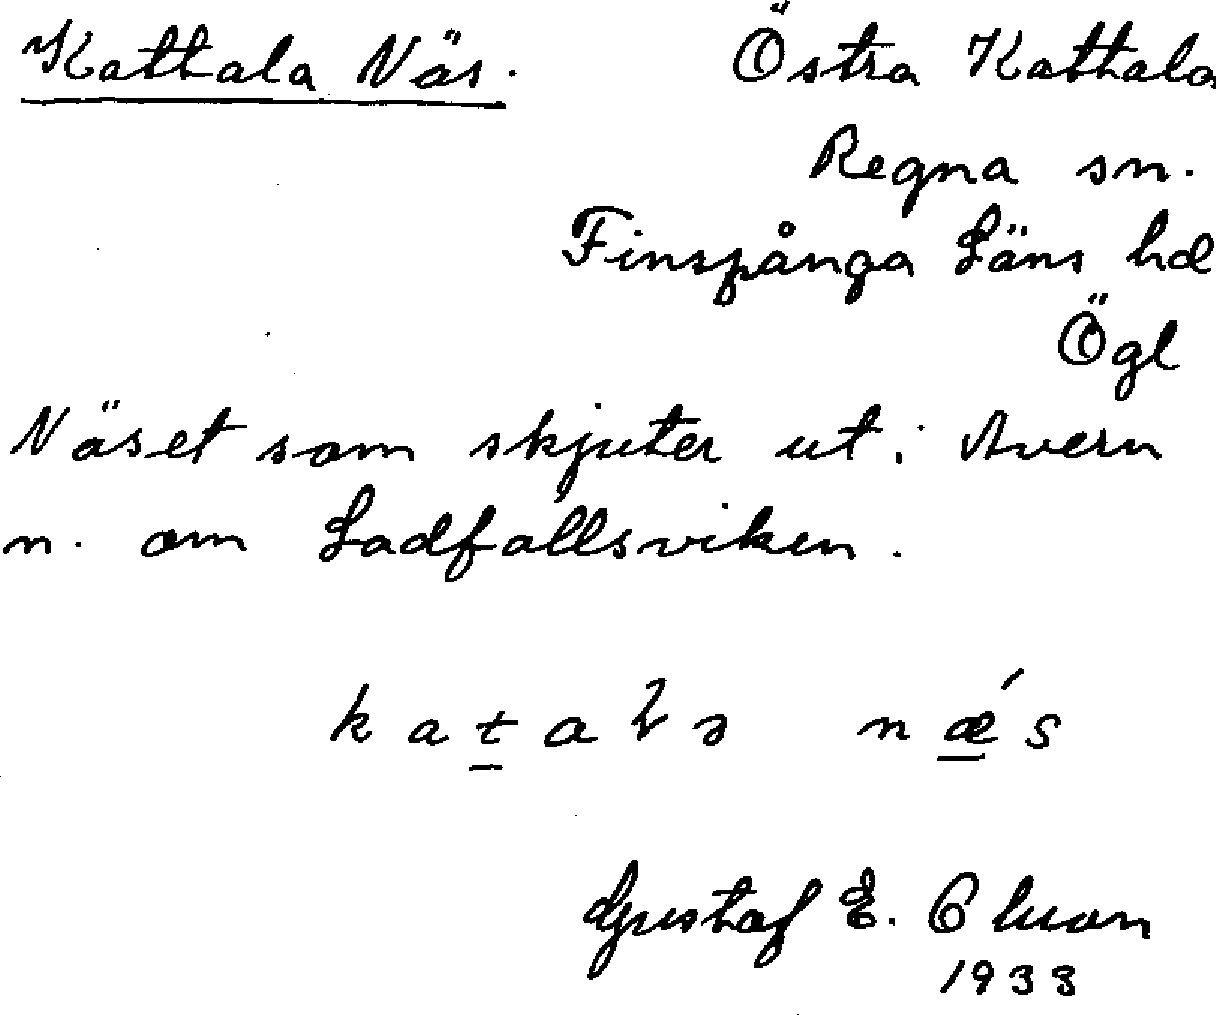 Kattala Näs. Östra Kattala
Regna sn.
Finspånga Läns hd
Ögl
Näset som skjuter ut i Avern
n. om Ladfallsviken.
1933
Gustaf E.